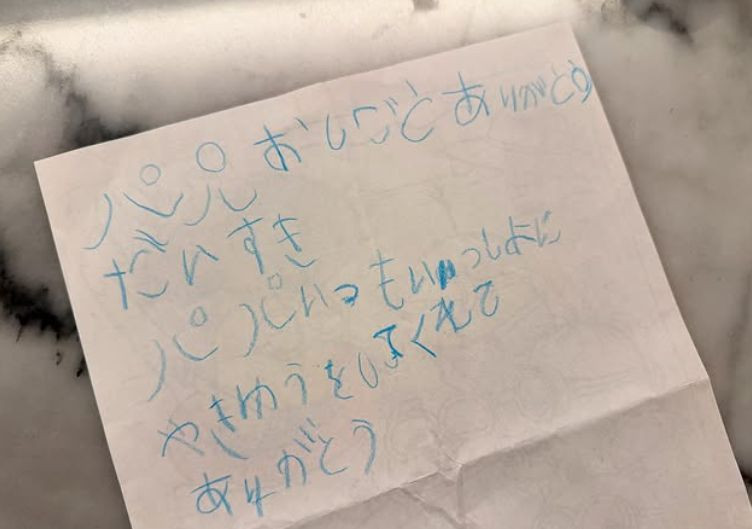 パパ おしごと ありがとう
だいすき
パパ いつもいっしょに
やきゅうをしてくれて
ありがとう